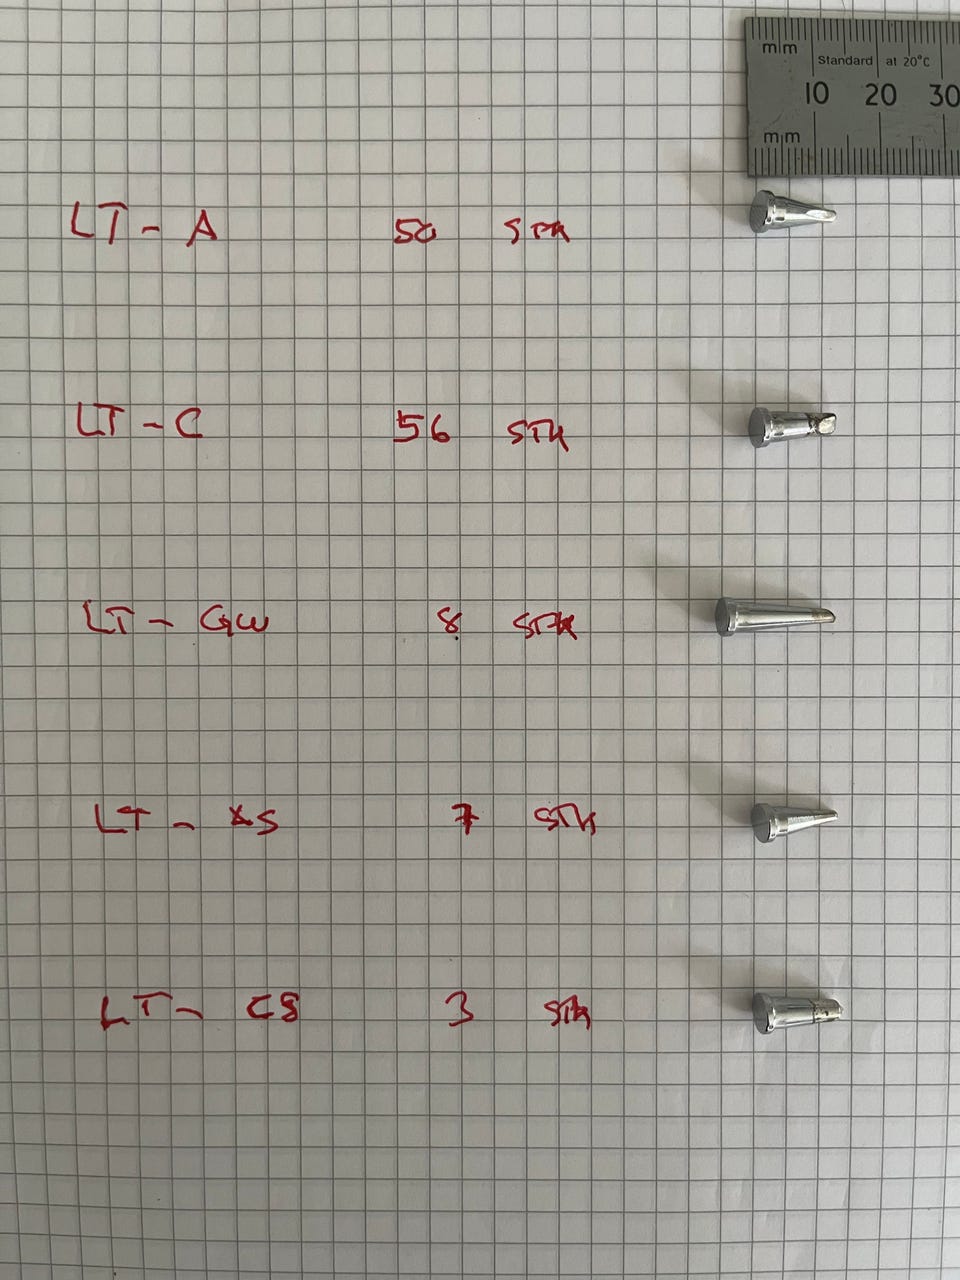 mm
Standard at 20°C
10 20 30
mm
LT - A 50 STK
LT - C 56 STK
LT - GW 8 STK
LT - 7 STK
LT - CS 3 STK